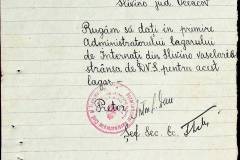 Slivino jud. Oceacov
Rugăm să dați în primire
Administratorului Lagărului
de Internați din Slivino vaselăria
strânsă de pentru acest
lagăr –
Pretor
Șef Sec. Ec.